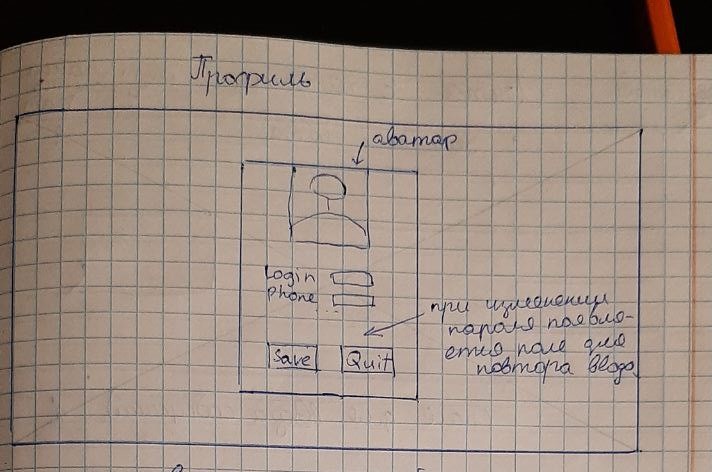 Профиль
аватар
Login
phone
...
при изменении
пароля появля-
ется поле для
повтора ввода
Save
Quit